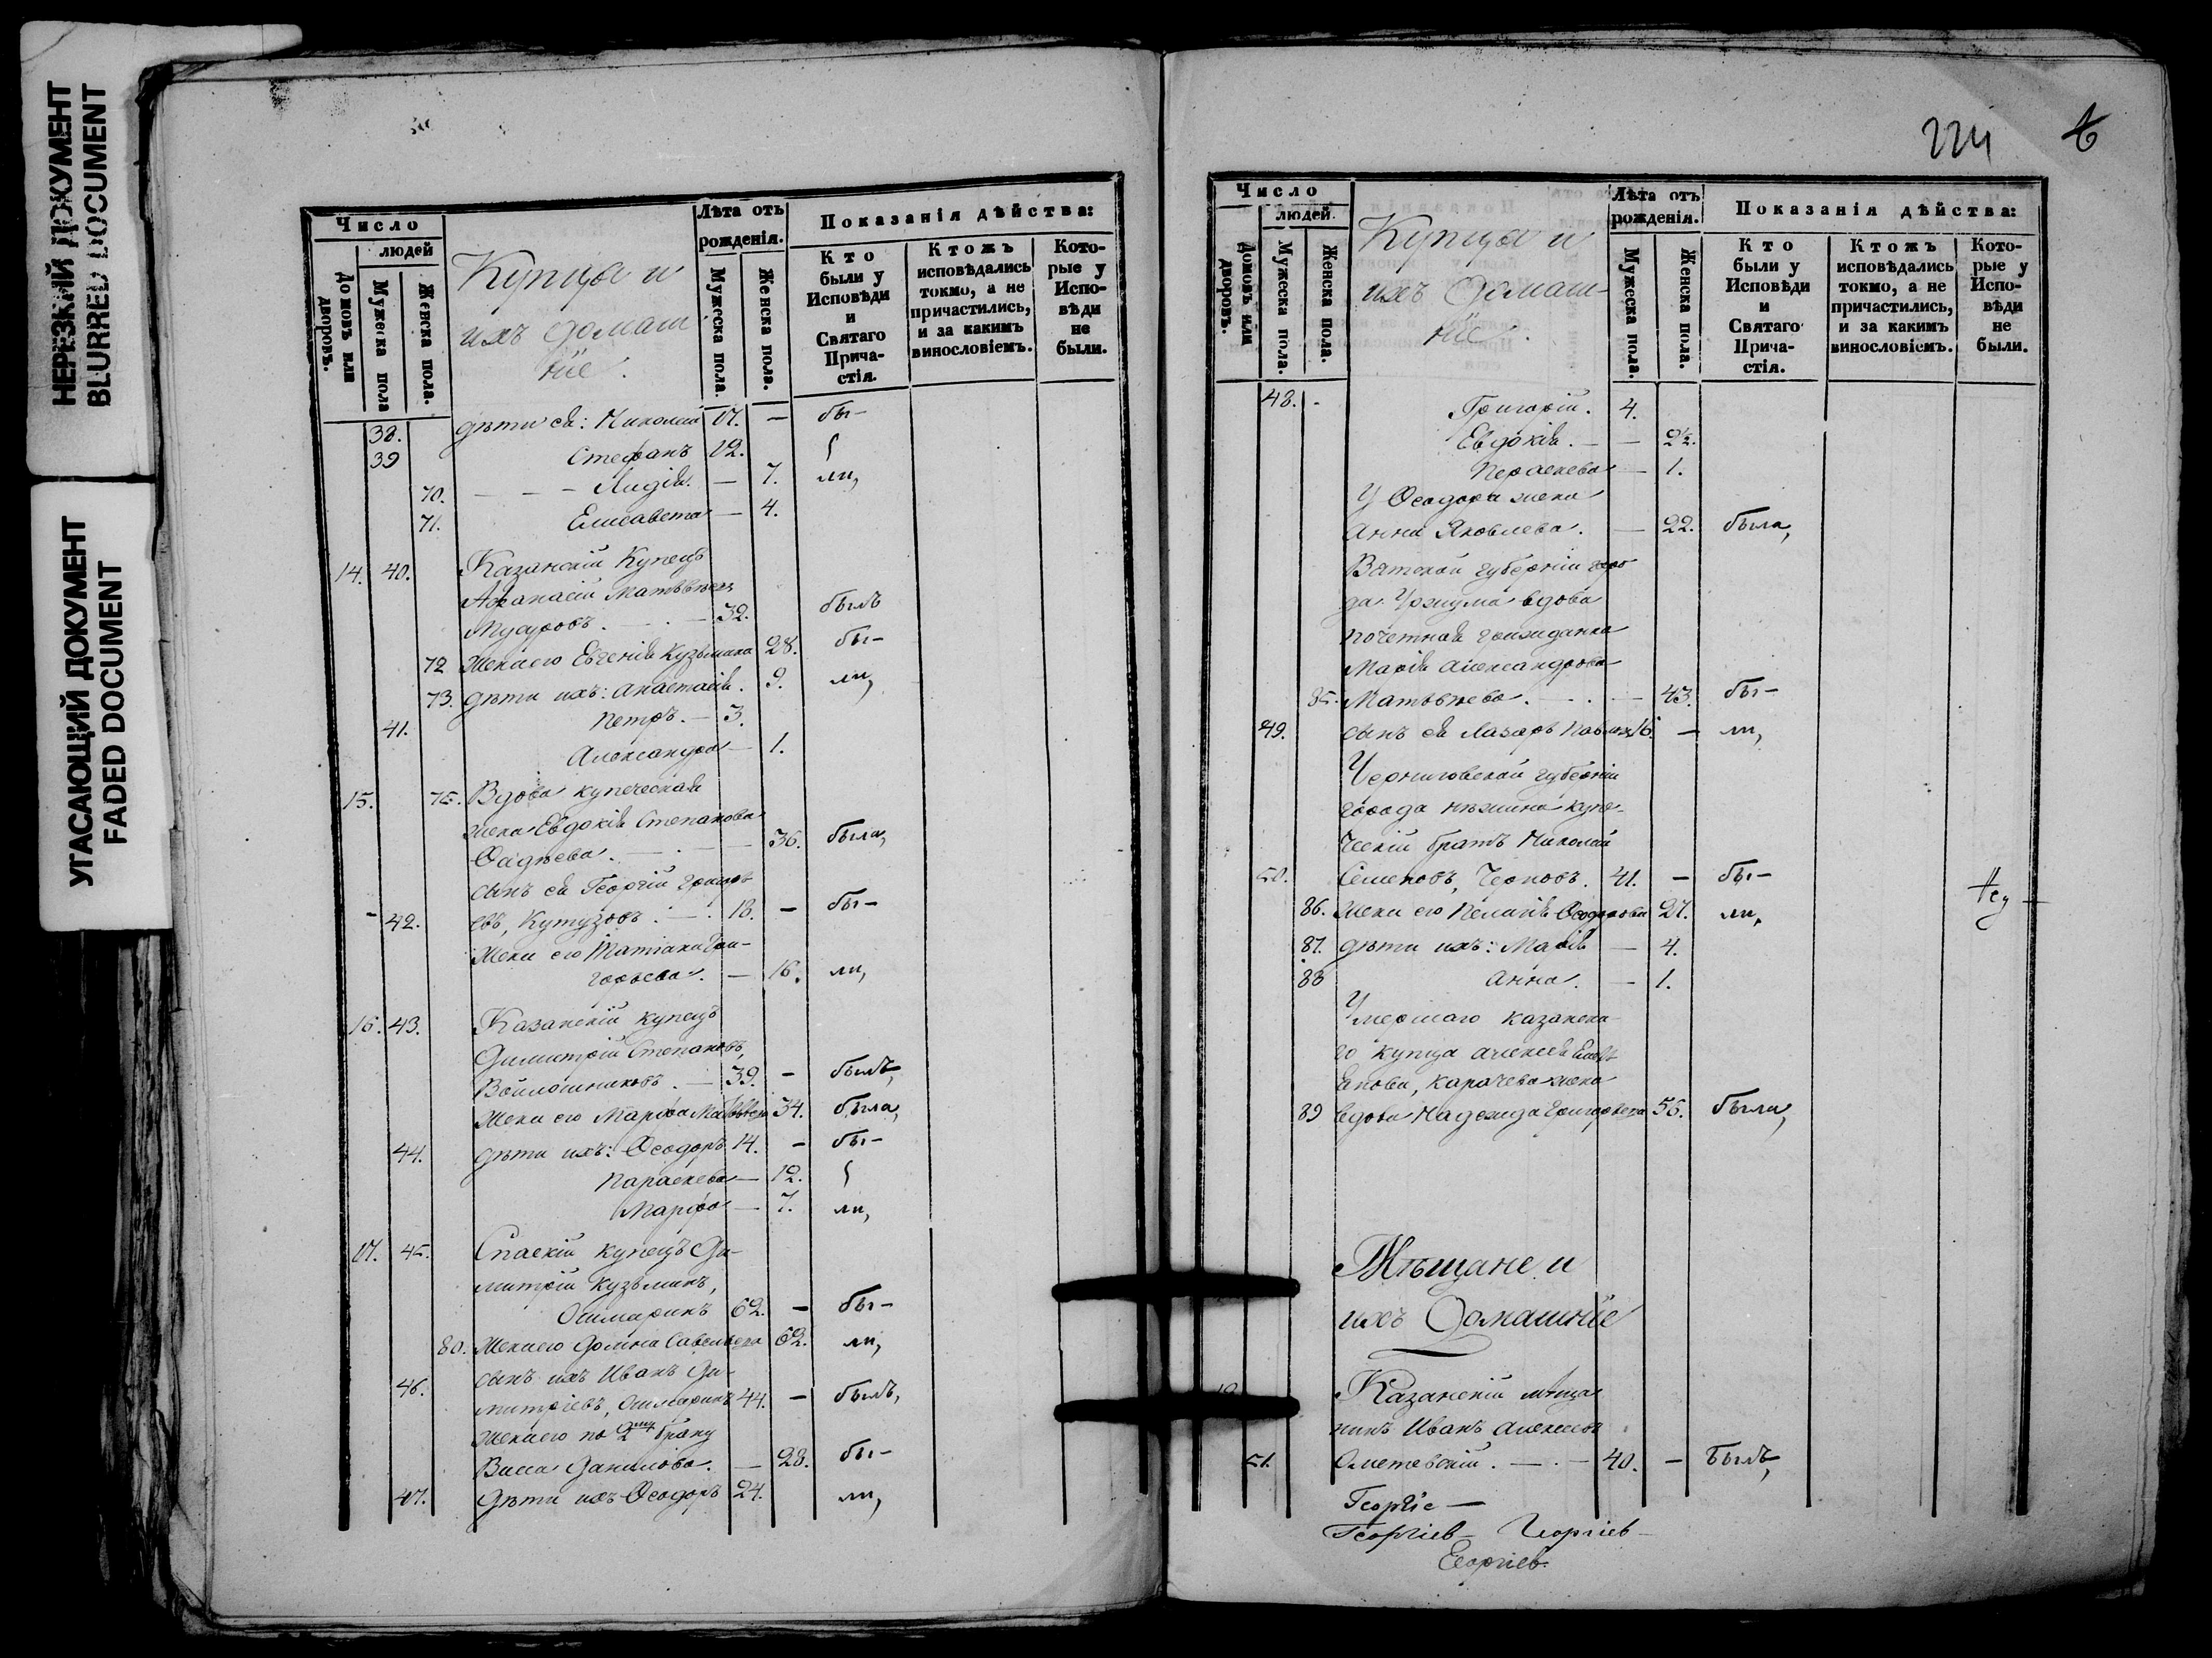 НЕРЕЗКИЙ ДОКУМЕНТ
BLURRED DOCUMENT
УГАСАЮЩИЙ ДОКУМЕНТ
FADED DOCUMENT
Число
людей
Домовъ или дворовъ.
Мужеска пола
Женска пола.
Купцы и
ихъ домаш
ніе.
Лѣта отъ рожденія.
Мужеска пола.
Женска пола.
Показанія дѣйства:
Кто были у Исповѣди и Святаго Прича-стія.
Ктожъ исповѣдались токмо, а не причастились, и за какимъ винословіемъ.
Кото-рые у Испо-вѣди не были.
38. дѣти ея: Николай 17. — бы-
39 Стефанъ 12.
70. — — — Лидія. — 7. ли,
71. Елисавета — 4.
14. 40. Казанскій Купецъ
Афанасій Матвѣевъ
32. былъ
72 Жена его Евгенія Кузьмина 28. бы-
73. дѣти ихъ: Анастасія. 9. ли,
41. Петръ. — 3.
Александра — 1.
15. 75. Вдова купеческая
жена Евдокія Степанова
Фадѣева. — — 36. была,
сынъ ея Георгій Григорь
- 42. евъ, Кутузовъ. — 18. — бы-
Жена его Татіана Гри-
горьева. — 16. ли,
16. 43. Казанскій купецъ
Димитрій Степановъ,
Войлошниковъ. — 39. — былъ,
Жена его Марѳа Матвѣева 34. была,
44. дѣти ихъ: Ѳеодоръ 14. — бы-
Параскева — 12.
Марѳа — 7. ли,
17. 45. Спаскій купецъ Ди-
митрій Кузьминъ,
Ошмаринъ 62. — бы-
80. Жена его Домна Савельева 62. ли,
46. сынъ ихъ Иванъ Ди-
митріевъ, Ошмаринъ 44. — былъ,
Жена его по 2му браку
Васса Данилова. — 28. бы-
47. Дѣти ихъ Ѳеодоръ 24. ли,
224
Число
людей.
Домовъ или дворовъ.
Мужеска пола.
Женска пола.
Купцы и
ихъ Домаш-
ніе.
Лѣта отъ рожденія.
Мужеска пола.
Женска пола.
Показанія дѣйства:
Кто были у Исповѣди и Святаго Прича-стія.
Ктожъ исповѣдались токмо, а не причастились, и за какимъ винословіемъ.
Кото-рые у Испо-вѣди не были.
48. - Григорій. 4.
Евдокія. — — 2½.
Параскева — 1.
У Ѳеодора жена
Анна Яковлева. — 22. была,
Вятской губерніи горо
да Уржума вдова
почетная гражданка
Марія Александрова
85. Матвѣева. — . — 43. бы-
49. сынъ ея Лазарь 16. — ли,
Черниговской губерніи
города Нѣжина купе-
ческій братъ Николай
50. Семеновъ, Черновъ. 41. — бы-
86. Жена его Пелагія Ѳеодорова 27. ли,
87. дѣти ихъ: Марія — 4.
88 Анна. — 1.
Умершаго казанска-
го купца Алексѣя
Карачева жена
89 вдова Надежда Григорьева 56. была,
Мѣщане и
ихъ Домашніе
Казанскій мѣща
нинъ Иванъ Алексѣевъ
51. Ометевскій. — . — 40. — Былъ,
Георгіе —
Георгіев — Георгіев —
Георгіев.